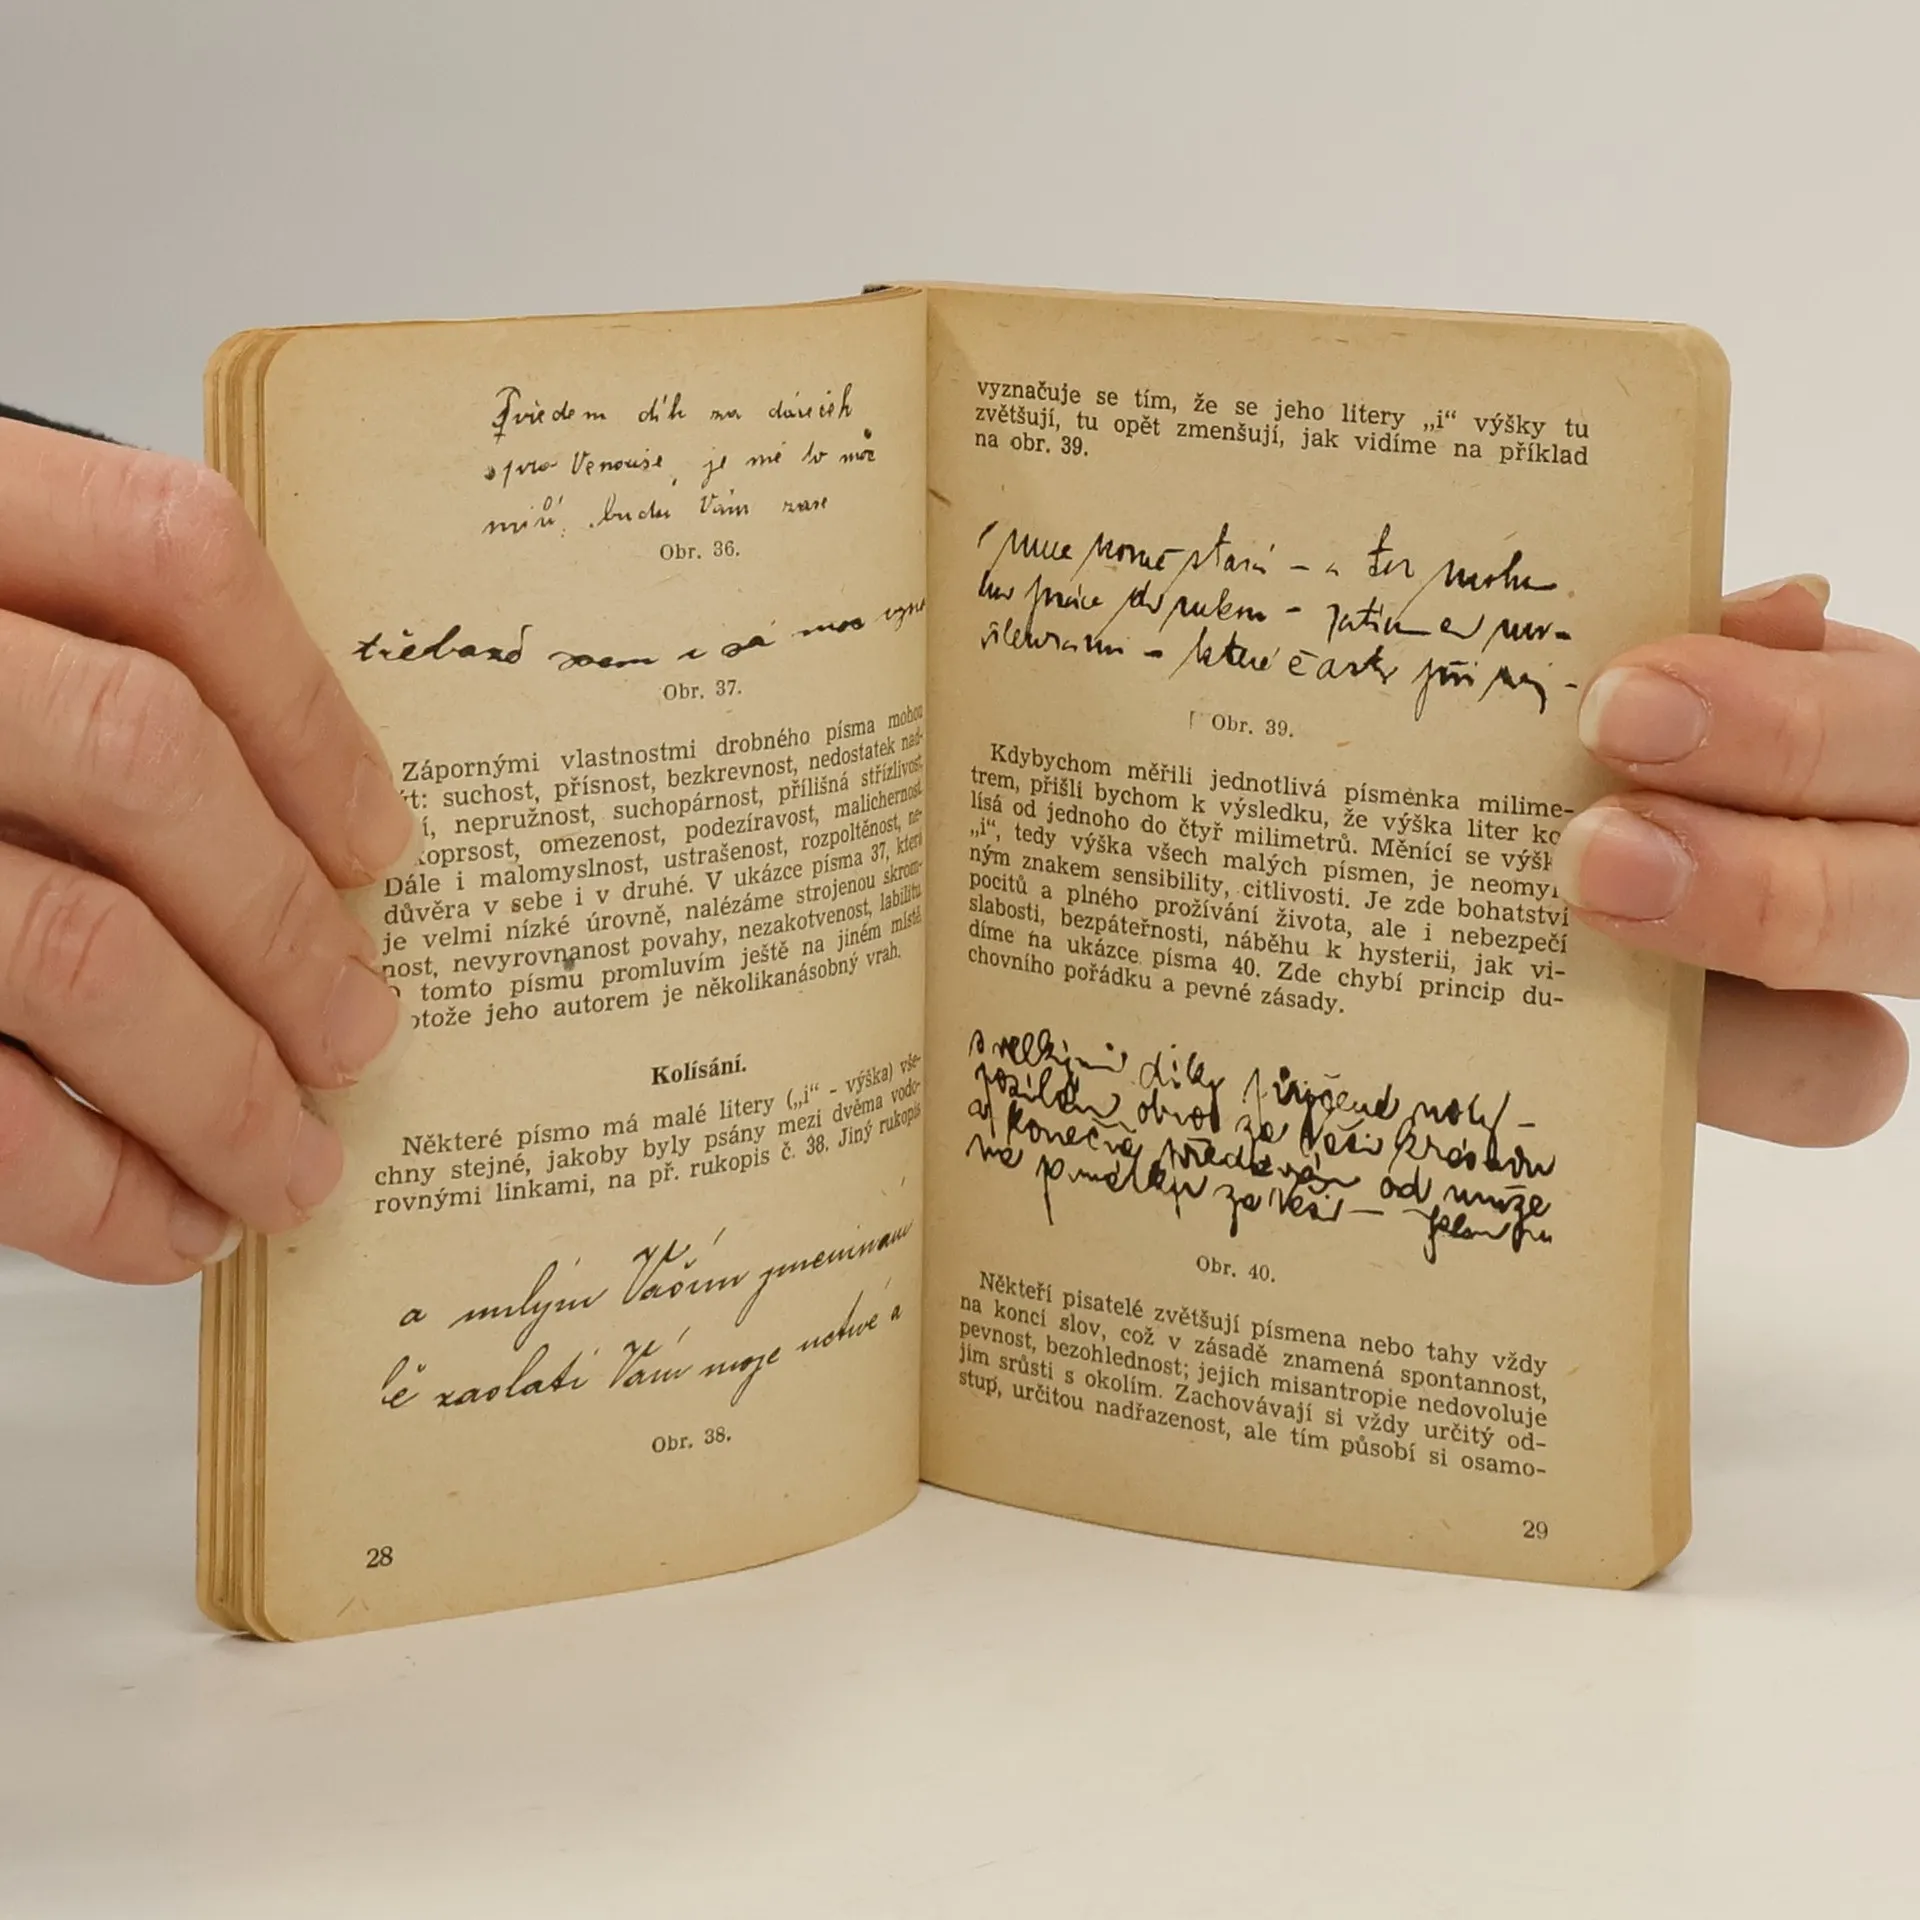 dík za dáreček
pro Venouše, je mé to moc
milé, budu Vám zase
Obr. 36.
třebaže jsem i
Obr. 37.
Zápornými vlastnostmi drobného písma mohou
suchost, přísnost, bezkrevnost, nedostatek nad-
nepružnost, suchopárnost, přílišná střízlivost,
omezenost, podezíravost, malichernost.
Dále i malomyslnost, ustrašenost, rozpoltěnost, ne-
důvěra v sebe i v druhé. V ukázce písma 37, která
je velmi nízké úrovně, nalézáme strojenou skrom-
nost, nevyrovnanost povahy, nezakotvenost, labilitu.
tomto písmu promluvím ještě na jiném místě,
jeho autorem je několikanásobný vrah.
Kolísání.
Některé písmo má malé litery („i“ - výška) vše-
chny stejné, jakoby byly psány mezi dvěma vodo-
rovnými linkami, na př. rukopis č. 38. Jiný rukopis
a milým Vaším jmeninám
zaslati Vám moje uctivé a
Obr. 38.
28
vyznačuje se tím, že se jeho litery „i“ výšky tu
zvětšují, tu opět zmenšují, jak vidíme na příklad
na obr. 39.
stará – a
práce –
– které části při
Obr. 39.
Kdybychom měřili jednotlivá písmenka milime-
trem, přišli bychom k výsledku, že výška liter ko-
lísá od jednoho do čtyř milimetrů. Měnící se výška
„i“, tedy výška všech malých písmen, je neomyl-
ným znakem sensibility, citlivosti. Je zde bohatství
pocitů a plného prožívání života, ale i nebezpečí
slabosti, bezpáteřnosti, náběhu k hysterii, jak vi-
díme na ukázce písma 40. Zde chybí princip du-
chovního pořádku a pevné zásady.
s velkými díky půjčené noty –
posílám obraz za Vaši krásnou
a konečně předávám od muže
na památku za Vaši –
Obr. 40.
Někteří pisatelé zvětšují písmena nebo tahy vždy
na konci slov, což v zásadě znamená spontannost,
pevnost, bezohlednost; jejich misantropie nedovoluje
jim srůsti s okolím. Zachovávají si vždy určitý od-
stup, určitou nadřazenost, ale tím působí si osamo-
29